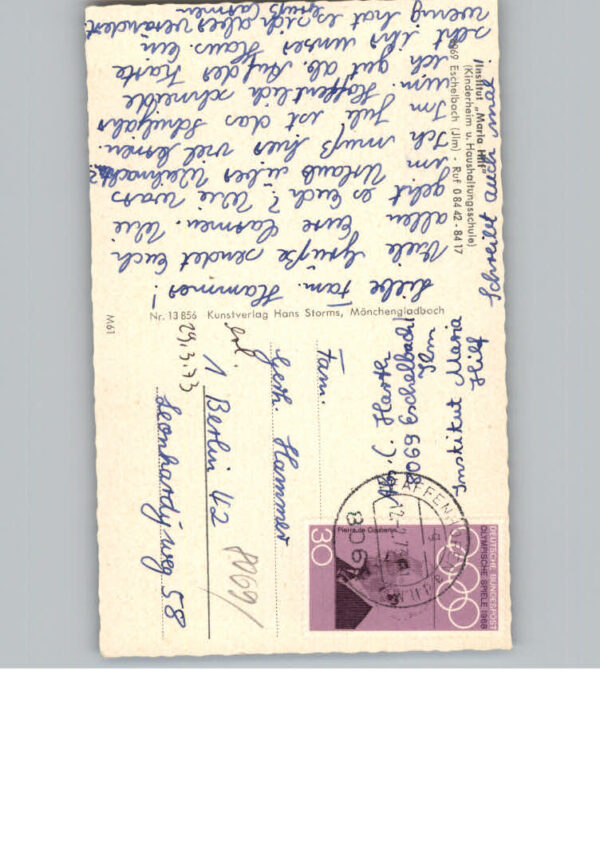 Institut „Maria Hilf"
(Kinderheim u. Haushaltungsschule)
8069 Eschelbach (Jlm) - Ruf 0 84 42 - 84 17
Liebe Fam. Hammer!
Viele Grüße sendet Euch
allen Eure Carmen. Wie
geht es Euch? Wie wars
im Urlaub über Weihnacht?
Ich muß hier viel lernen.
Im Juli ist das Schuljahr
um. Hoffentlich schneide
ich gut ab. Auf der Karte
seht ihr unser Haus. Ein
wenig hat es sich aber verändert.
Gruß Carmen
Schreibt auch
Nr. 13 856 Kunstverlag Hans Storms, Mönchengladbach
M61
29.3.73
Abs. C. Harth
8069 Eschelbach/
Ilm
Institut Maria
Hilf
Fam.
Gerh. Hammer
1 Berlin 42
Leonhardyweg 58
8069/
DEUTSCHE BUNDESPOST
OLYMPISCHE SPIELE 1968
Pierre de Coubertin
30
PFAFFENHOFEN
806